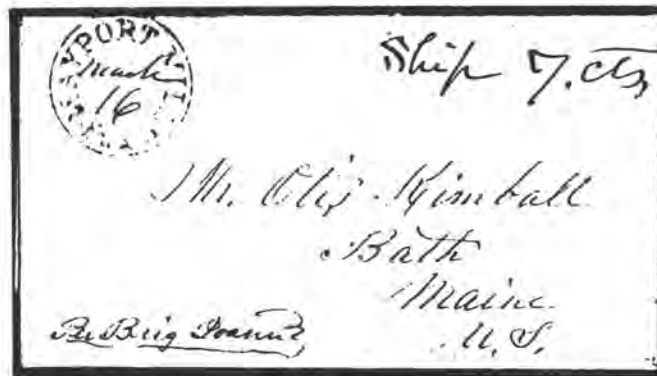 YPORT
March
16
Ship 7.cts
Mr. Otis Kimball
Bath
Maine
U.S.
Per Brig